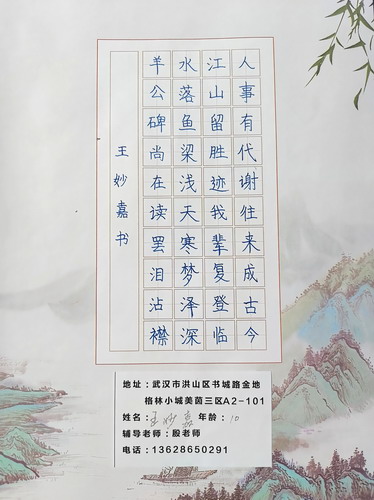 人事有代谢往来成古今
江山留胜迹我辈复登临
水落鱼梁浅天寒梦泽深
羊公碑尚在读罢泪沾襟
王妙嘉书
地址：武汉市洪山区书城路金地
格林小城美茵三区A2-101
姓名：王妙嘉 年龄：10
辅导老师：殷老师
电话：13628650291